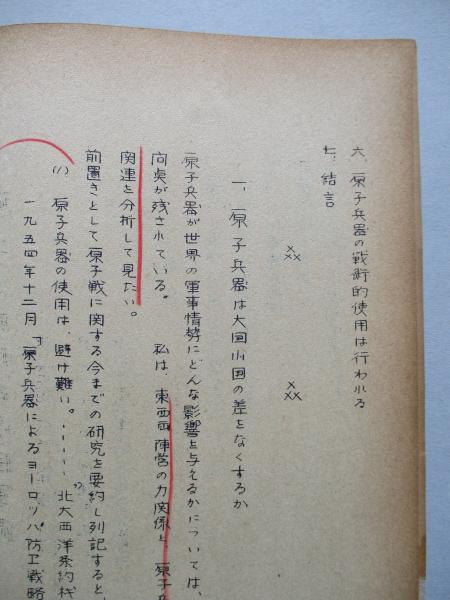 六、原子兵器の戦術的使用は行われる
七、結言
×
××
×
××
一、原子兵器は大国小国の差をなくするか
原子兵器が世界の軍事情勢にどんな影響を与えるかについては、
向点が残されている。 私は、東西両陣営の力関係と 原子兵
関連を分析して見たい。
前置きとして原子戦に関する今までの研究を要約し列記すると、
(1) 原子兵器の使用は、避け難い。……北大西洋条約機
一九五四年十二月「原子兵器によるヨーロッパ防卫戦略